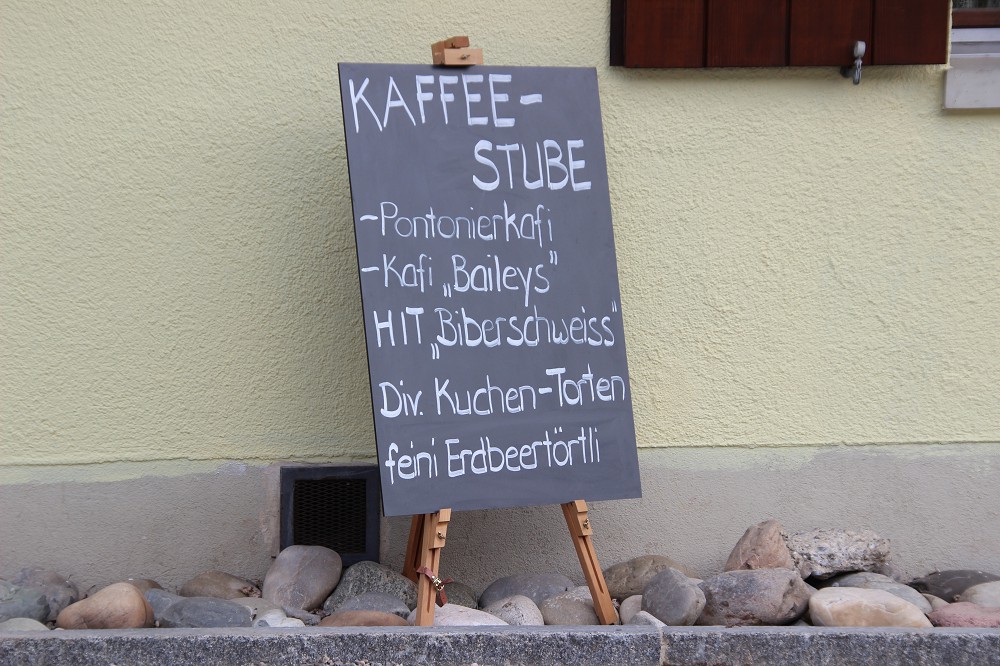 KAFFEE-
STUBE
-Pontonierkafi
-Kafi „Baileys"
HIT „Biberschweiss"
Div. Kuchen-Torten
feini Erdbeertörtli